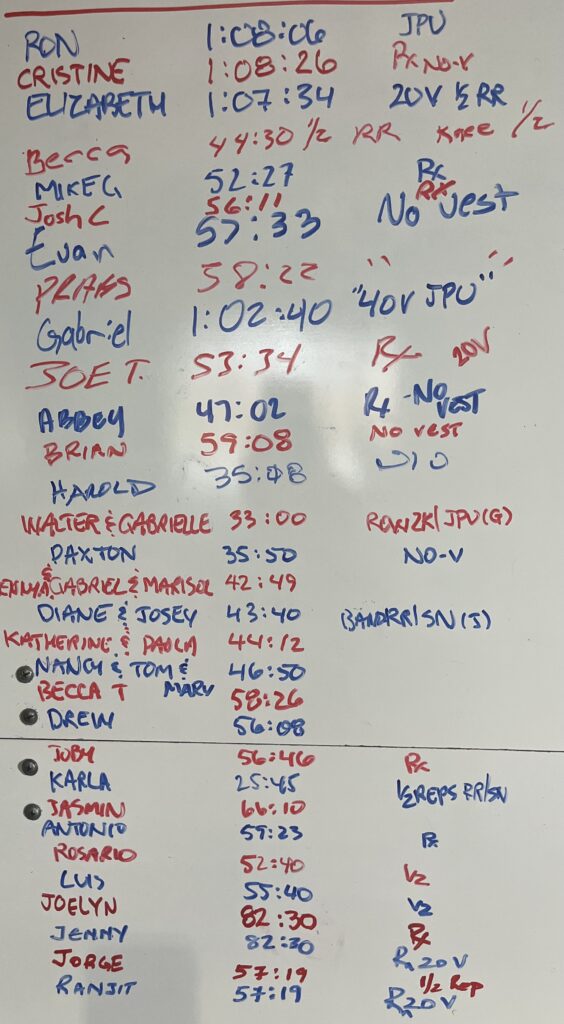 RON 1:08:06 JPU
CRISTINE 1:08:26 Rx NO-V
ELIZABETH 1:07:34 20V ½ RR
Becca 44:30 ½ RR Knee ½
MIKE G 52:27 Rx
Josh C 56:11 RX
Evan 57:33 No vest
58:22 " "
Gabriel 1:02:40 "40V JPU"
JOE T. 53:34 Rx 20V
ABBEY 47:02 Rx -No VEST
BRIAN 59:08 No VEST
HAROLD 35:08
WALTER & GABRIELLE 33:00 ROW2K/JPU(G)
PAXTON 35:50 NO-V
& GABRIEL & MARISOL 42:49
DIANE & JOSEY 43:40 BANDRR/SN(J)
KATHERINE & PAOLA 44:12
NANCY & TOM & MARV 46:50
BECCA T 58:26
DREW 56:08
JOBY 56:46 Rx
KARLA 25:45 ½REPS RR/SN
JASMIN 66:10
ANTONIO 59:23 Rx
ROSARIO 52:40 ½
LUIS 55:40 ½
JOELYN 82:30 Rx
JENNY 82:30 Rx 20V
JORGE 57:19 ½ Rep
RANJIT 57:19 Rx 20V